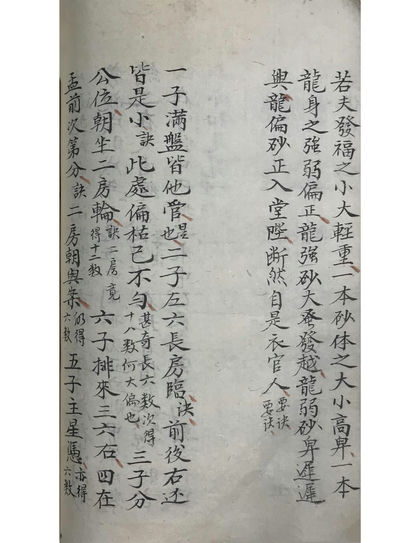 若夫發福之小大輊重一本砂体之大小高卑一本
龍身之強弱偏正龍強砂大蚤發越龍弱砂卑遲遲
與龍偏砂正入堂陛断然自是衣官人要訣要訣
一子满盤皆他管是也二子左六長房臨訣前後右还
皆是小訣此處偏枯已不勻甚奇長六数次得十八数何大偏也三子分
公位朝坐二房輪訣二房竟得十二数六子排來三六右四在
孟前次第分訣二房朝與案仍得六数五子主星憑亦得六数